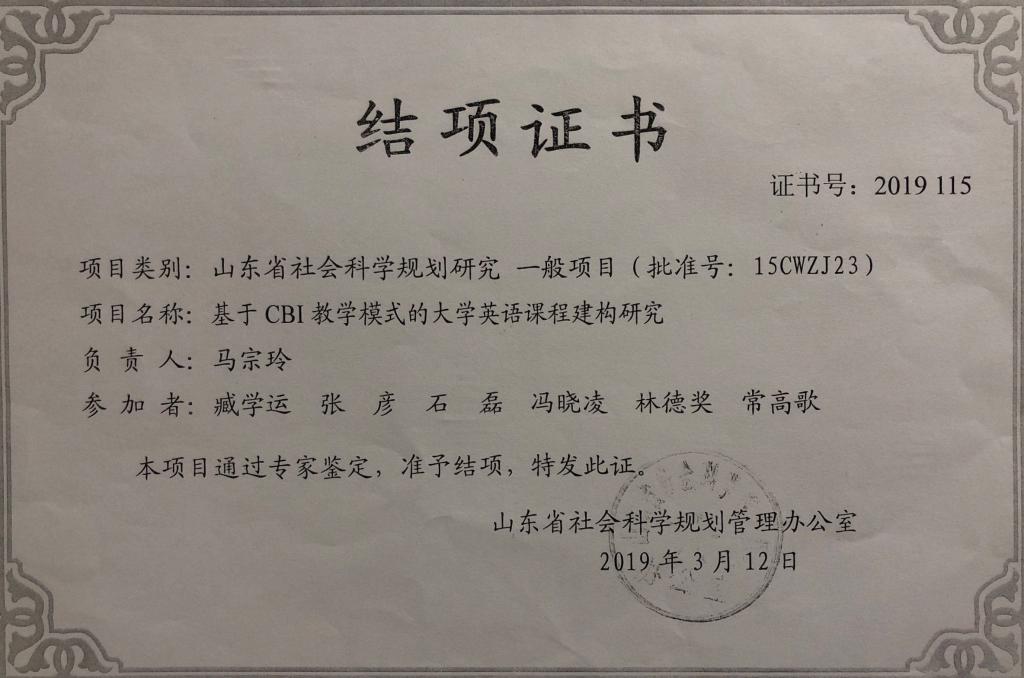 结项证书
证书号：2019 115
项目类别：山东省社会科学规划研究 一般项目（批准号：15CWZJ23）
项目名称：基于 CBI 教学模式的大学英语课程建构研究
负 责 人：马宗玲
参 加 者：臧学运 张 彦 石 磊 冯晓凌 林德奖 常高歌
本项目通过专家鉴定，准予结项，特发此证。
山东省社会科学规划管理办公室
2019 年 3 月 12 日